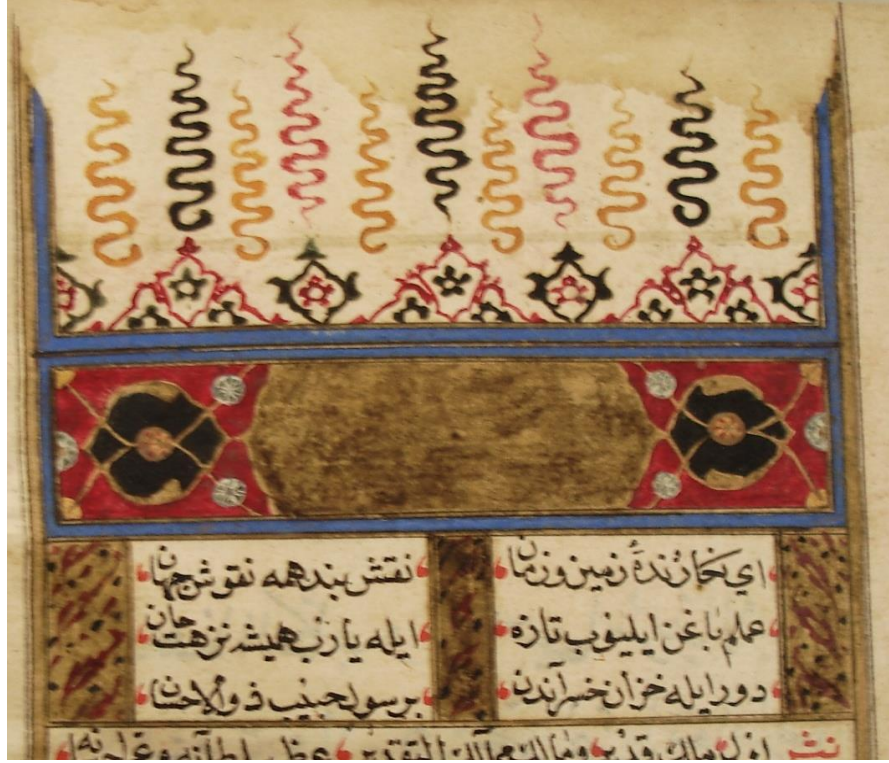 ای نکارندهٔ زمین و زمان نقش بند همه نقوش جهان
علم باغن ایلیوب تازه ایله یا رب همیشه نزهت جان
دور ایله خزان خسرآندن برسول حبیب ذو الاحسان
نثر اول مالك قدیر و مالك